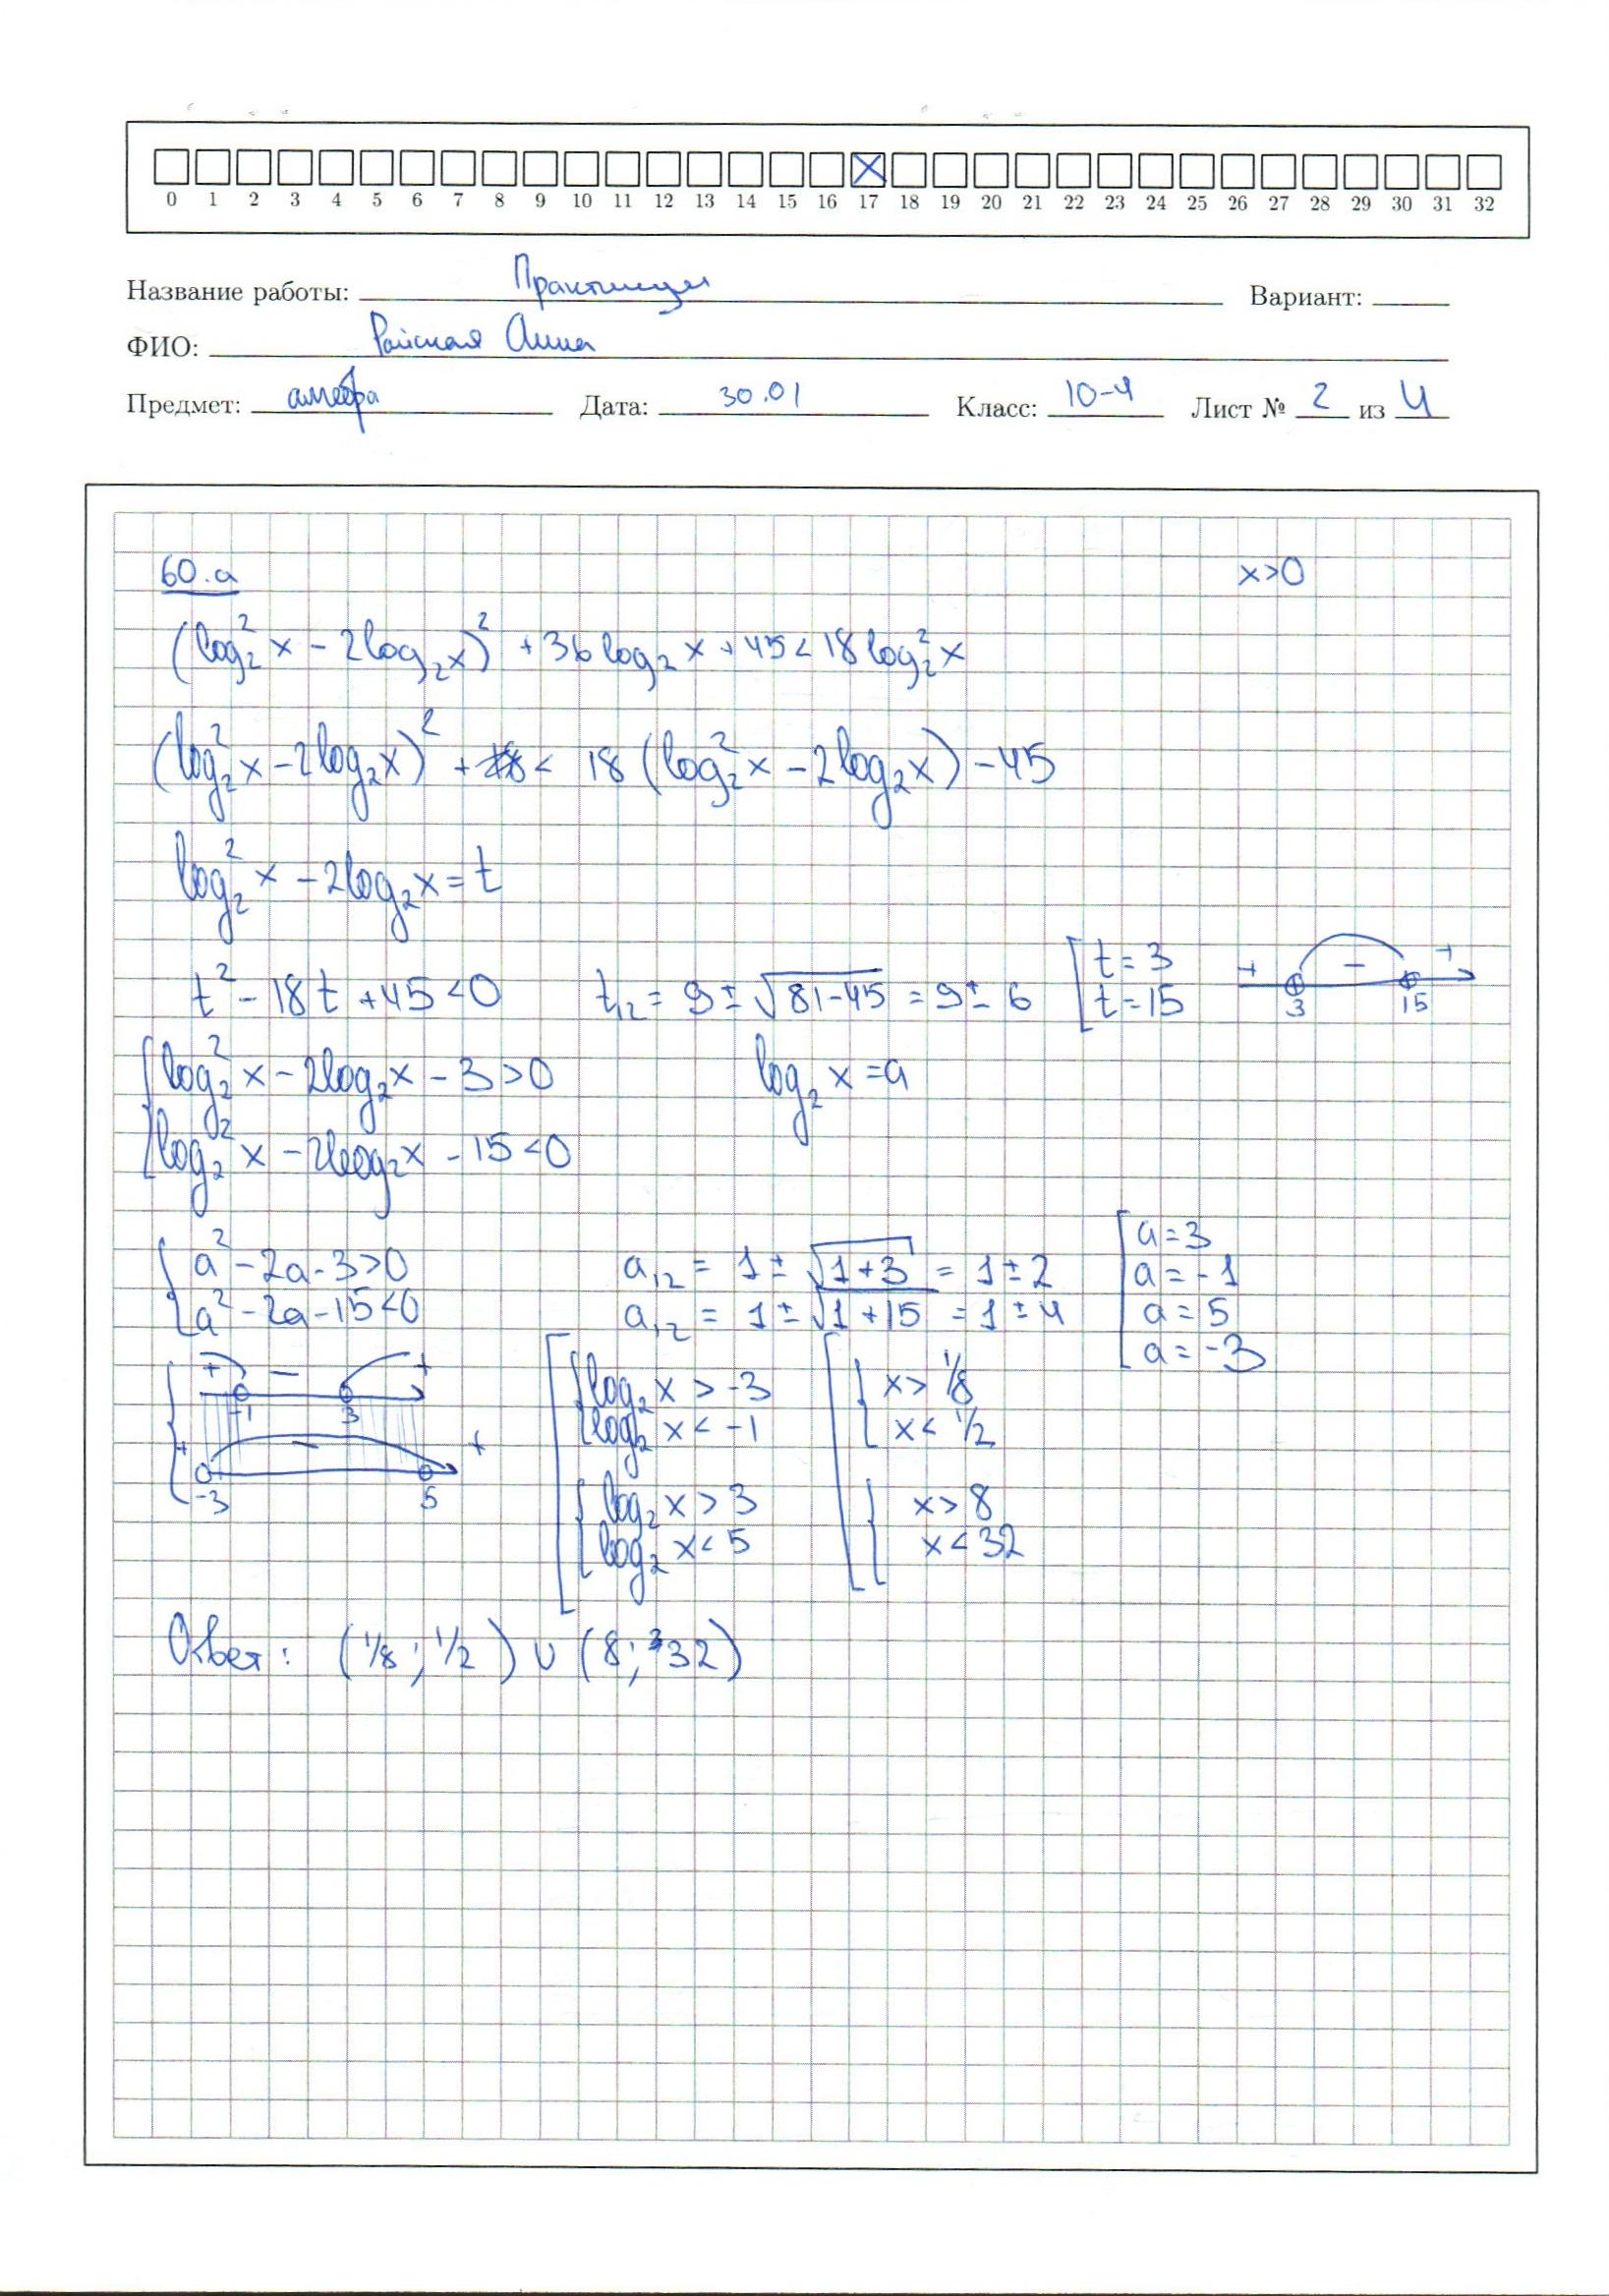 0 1 2 3 4 5 6 7 8 9 10 11 12 13 14 15 16 17 18 19 20 21 22 23 24 25 26 27 28 29 30 31 32
Название работы: Практикум Вариант:
ФИО: Райская Анна
Предмет: алгебра Дата: 30.01 Класс: 10-4 Лист № 2 из 4
60.а x>0
(log₂²x - 2log₂x)² + 36log₂x + 45 < 18log₂²x
(log₂²x - 2log₂x)² + < 18(log₂²x - 2log₂x) - 45
log₂²x - 2log₂x = t
t² - 18t + 45 < 0 t₁,₂ = 9 ± √(81-45) = 9 ± 6 [ t = 3 + - +
t = 15 3 15
{ log₂²x - 2log₂x - 3 > 0 log₂x = a
log₂²x - 2log₂x - 15 < 0
[ a = 3
{ a² - 2a - 3 > 0 a₁,₂ = 1 ± √(1+3) = 1 ± 2 a = -1
a² - 2a - 15 < 0 a₁,₂ = 1 ± √(1+15) = 1 ± 4 a = 5
a = -3
{ + - + [ { log₂x > -3 [ { x > 1/8
-1 3 log₂x < -1 x < 1/2
+ - +
-3 5 { log₂x > 3 { x > 8
log₂x < 5 x < 32
Ответ: (1/8; 1/2) ∪ (8; 32)